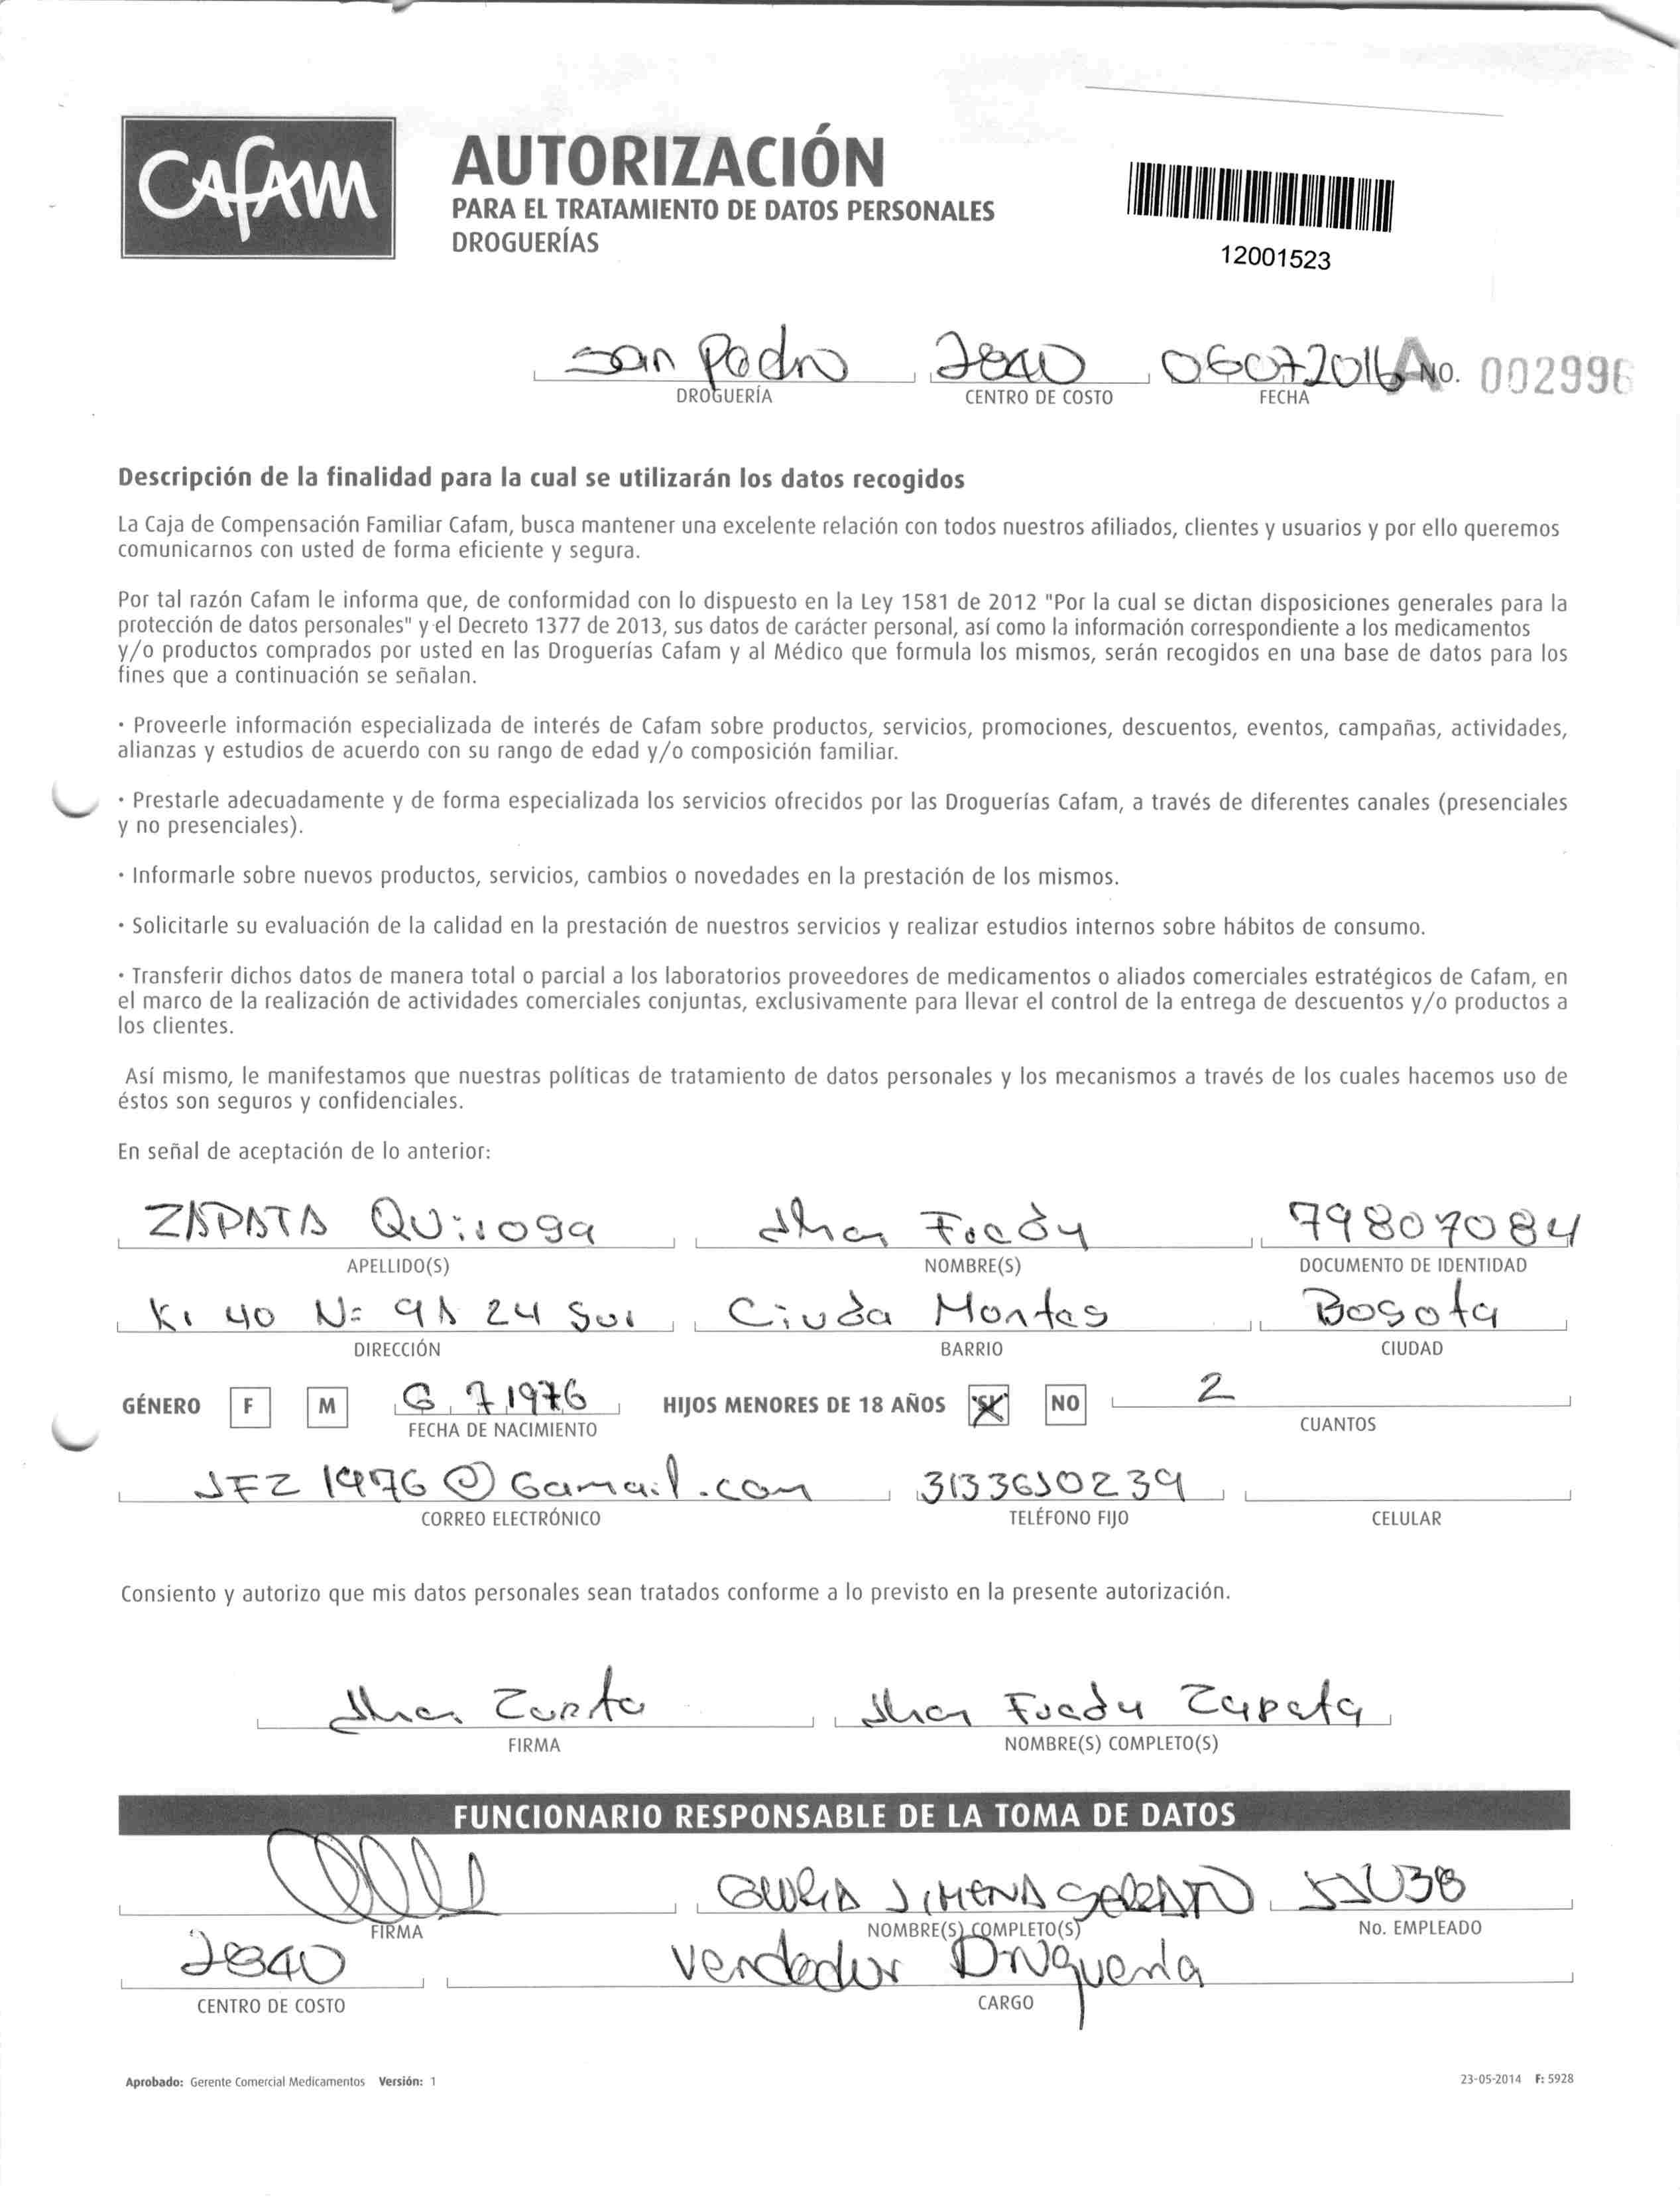 CAFAM
AUTORIZACIÓN
PARA EL TRATAMIENTO DE DATOS PERSONALES
DROGUERÍAS
12001523
San Pedro 2840 06072016 A No. 002996
DROGUERÍA CENTRO DE COSTO FECHA
Descripción de la finalidad para la cual se utilizarán los datos recogidos
La Caja de Compensación Familiar Cafam, busca mantener una excelente relación con todos nuestros afiliados, clientes y usuarios y por ello queremos
comunicarnos con usted de forma eficiente y segura.
Por tal razón Cafam le informa que, de conformidad con lo dispuesto en la Ley 1581 de 2012 "Por la cual se dictan disposiciones generales para la
protección de datos personales" y el Decreto 1377 de 2013, sus datos de carácter personal, así como la información correspondiente a los medicamentos
y/o productos comprados por usted en las Droguerías Cafam y al Médico que formula los mismos, serán recogidos en una base de datos para los
fines que a continuación se señalan.
· Proveerle información especializada de interés de Cafam sobre productos, servicios, promociones, descuentos, eventos, campañas, actividades,
alianzas y estudios de acuerdo con su rango de edad y/o composición familiar.
· Prestarle adecuadamente y de forma especializada los servicios ofrecidos por las Droguerías Cafam, a través de diferentes canales (presenciales
y no presenciales).
· Informarle sobre nuevos productos, servicios, cambios o novedades en la prestación de los mismos.
· Solicitarle su evaluación de la calidad en la prestación de nuestros servicios y realizar estudios internos sobre hábitos de consumo.
· Transferir dichos datos de manera total o parcial a los laboratorios proveedores de medicamentos o aliados comerciales estratégicos de Cafam, en
el marco de la realización de actividades comerciales conjuntas, exclusivamente para llevar el control de la entrega de descuentos y/o productos a
los clientes.
Así mismo, le manifestamos que nuestras políticas de tratamiento de datos personales y los mecanismos a través de los cuales hacemos uso de
éstos son seguros y confidenciales.
En señal de aceptación de lo anterior:
ZAPATA Quiroga Jhon Fredy 79807084
APELLIDO(S) NOMBRE(S) DOCUMENTO DE IDENTIDAD
Kr 40 N= 9A 24 Sur Ciuda Montes Bogota
DIRECCIÓN BARRIO CIUDAD
GÉNERO F M 6 7 1976 HIJOS MENORES DE 18 AÑOS SI NO 2
FECHA DE NACIMIENTO CUANTOS
JFZ 1976 @ Gamail.com 3133650239
CORREO ELECTRÓNICO TELÉFONO FIJO CELULAR
Consiento y autorizo que mis datos personales sean tratados conforme a lo previsto en la presente autorización.
Jhon Zapata Jhon Fredy Zapata
FIRMA NOMBRE(S) COMPLETO(S)
FUNCIONARIO RESPONSABLE DE LA TOMA DE DATOS
JIMENA
FIRMA NOMBRE(S) COMPLETO(S) No. EMPLEADO
2840 Vendedor Drogueria
CENTRO DE COSTO CARGO
Aprobado: Gerente Comercial Medicamentos Versión: 1 23-05-2014 F: 5928